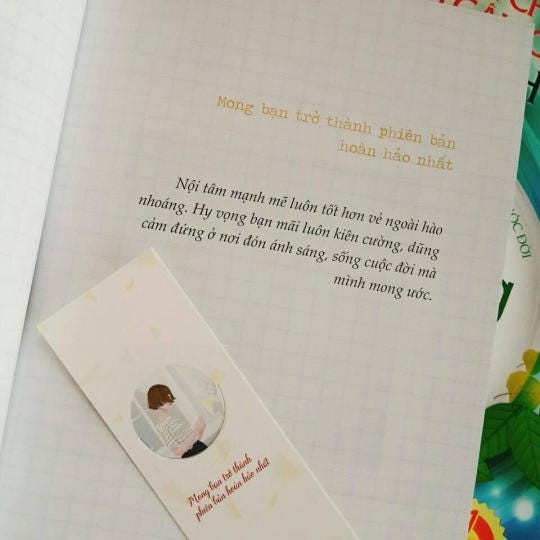 Mong bạn trở thành phiên bản
hoàn hảo nhất
Nội tâm mạnh mẽ luôn tốt hơn vẻ ngoài hào
nhoáng. Hy vọng bạn mãi luôn kiên cường, dũng
cảm đứng ở nơi đón ánh sáng, sống cuộc đời mà
mình mong ước.
Mong bạn trở thành
phiên bản hoàn hảo nhất